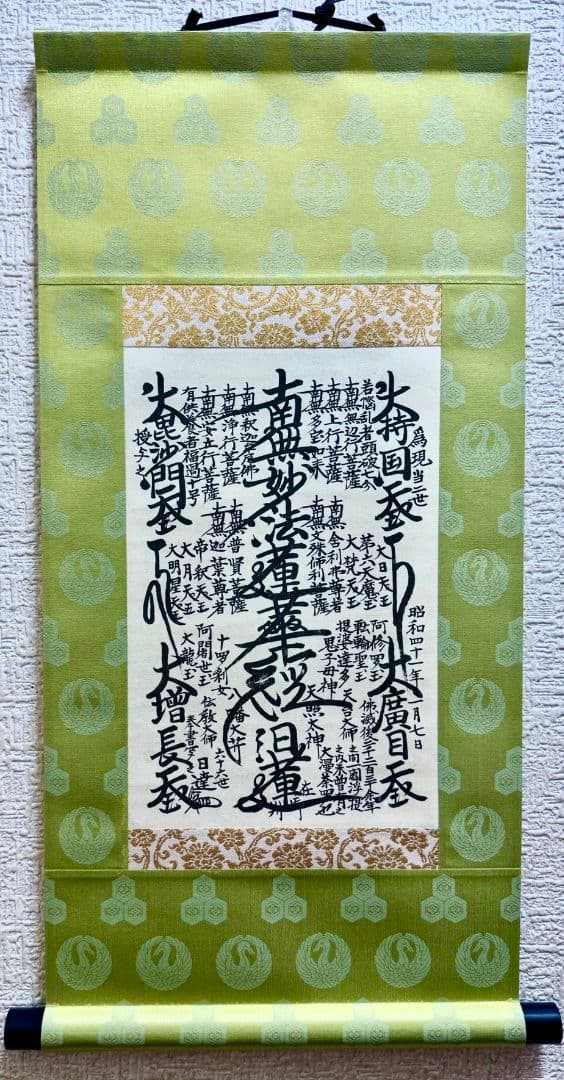 為現当二世
昭和四十一年一月七日
大持国天王
大廣目天王
若悩乱者頭破七分
南無無辺行菩薩
南無上行菩薩
南無多宝如来
大日天王
第六天魔王
大梵天王
南無舎利弗尊者
南無文殊師利菩薩
阿修羅王
転輪聖王
提婆達多
鬼子母神
天台大師
天照大神
佛滅後二千二百三十余年
大漫荼羅也
南無妙法蓮華経
日蓮
南無釈迦牟尼佛
南無浄行菩薩
南無安立行菩薩
有供養者福過十号
南無普賢菩薩
南無迦葉尊者
帝釈天王
大月天王
大明星天王
十羅刹女
阿闍世王
大龍王
八幡大菩薩
伝教大師
六十六世
日達
奉書写之
大毘沙門天王
大増長天王
授与之